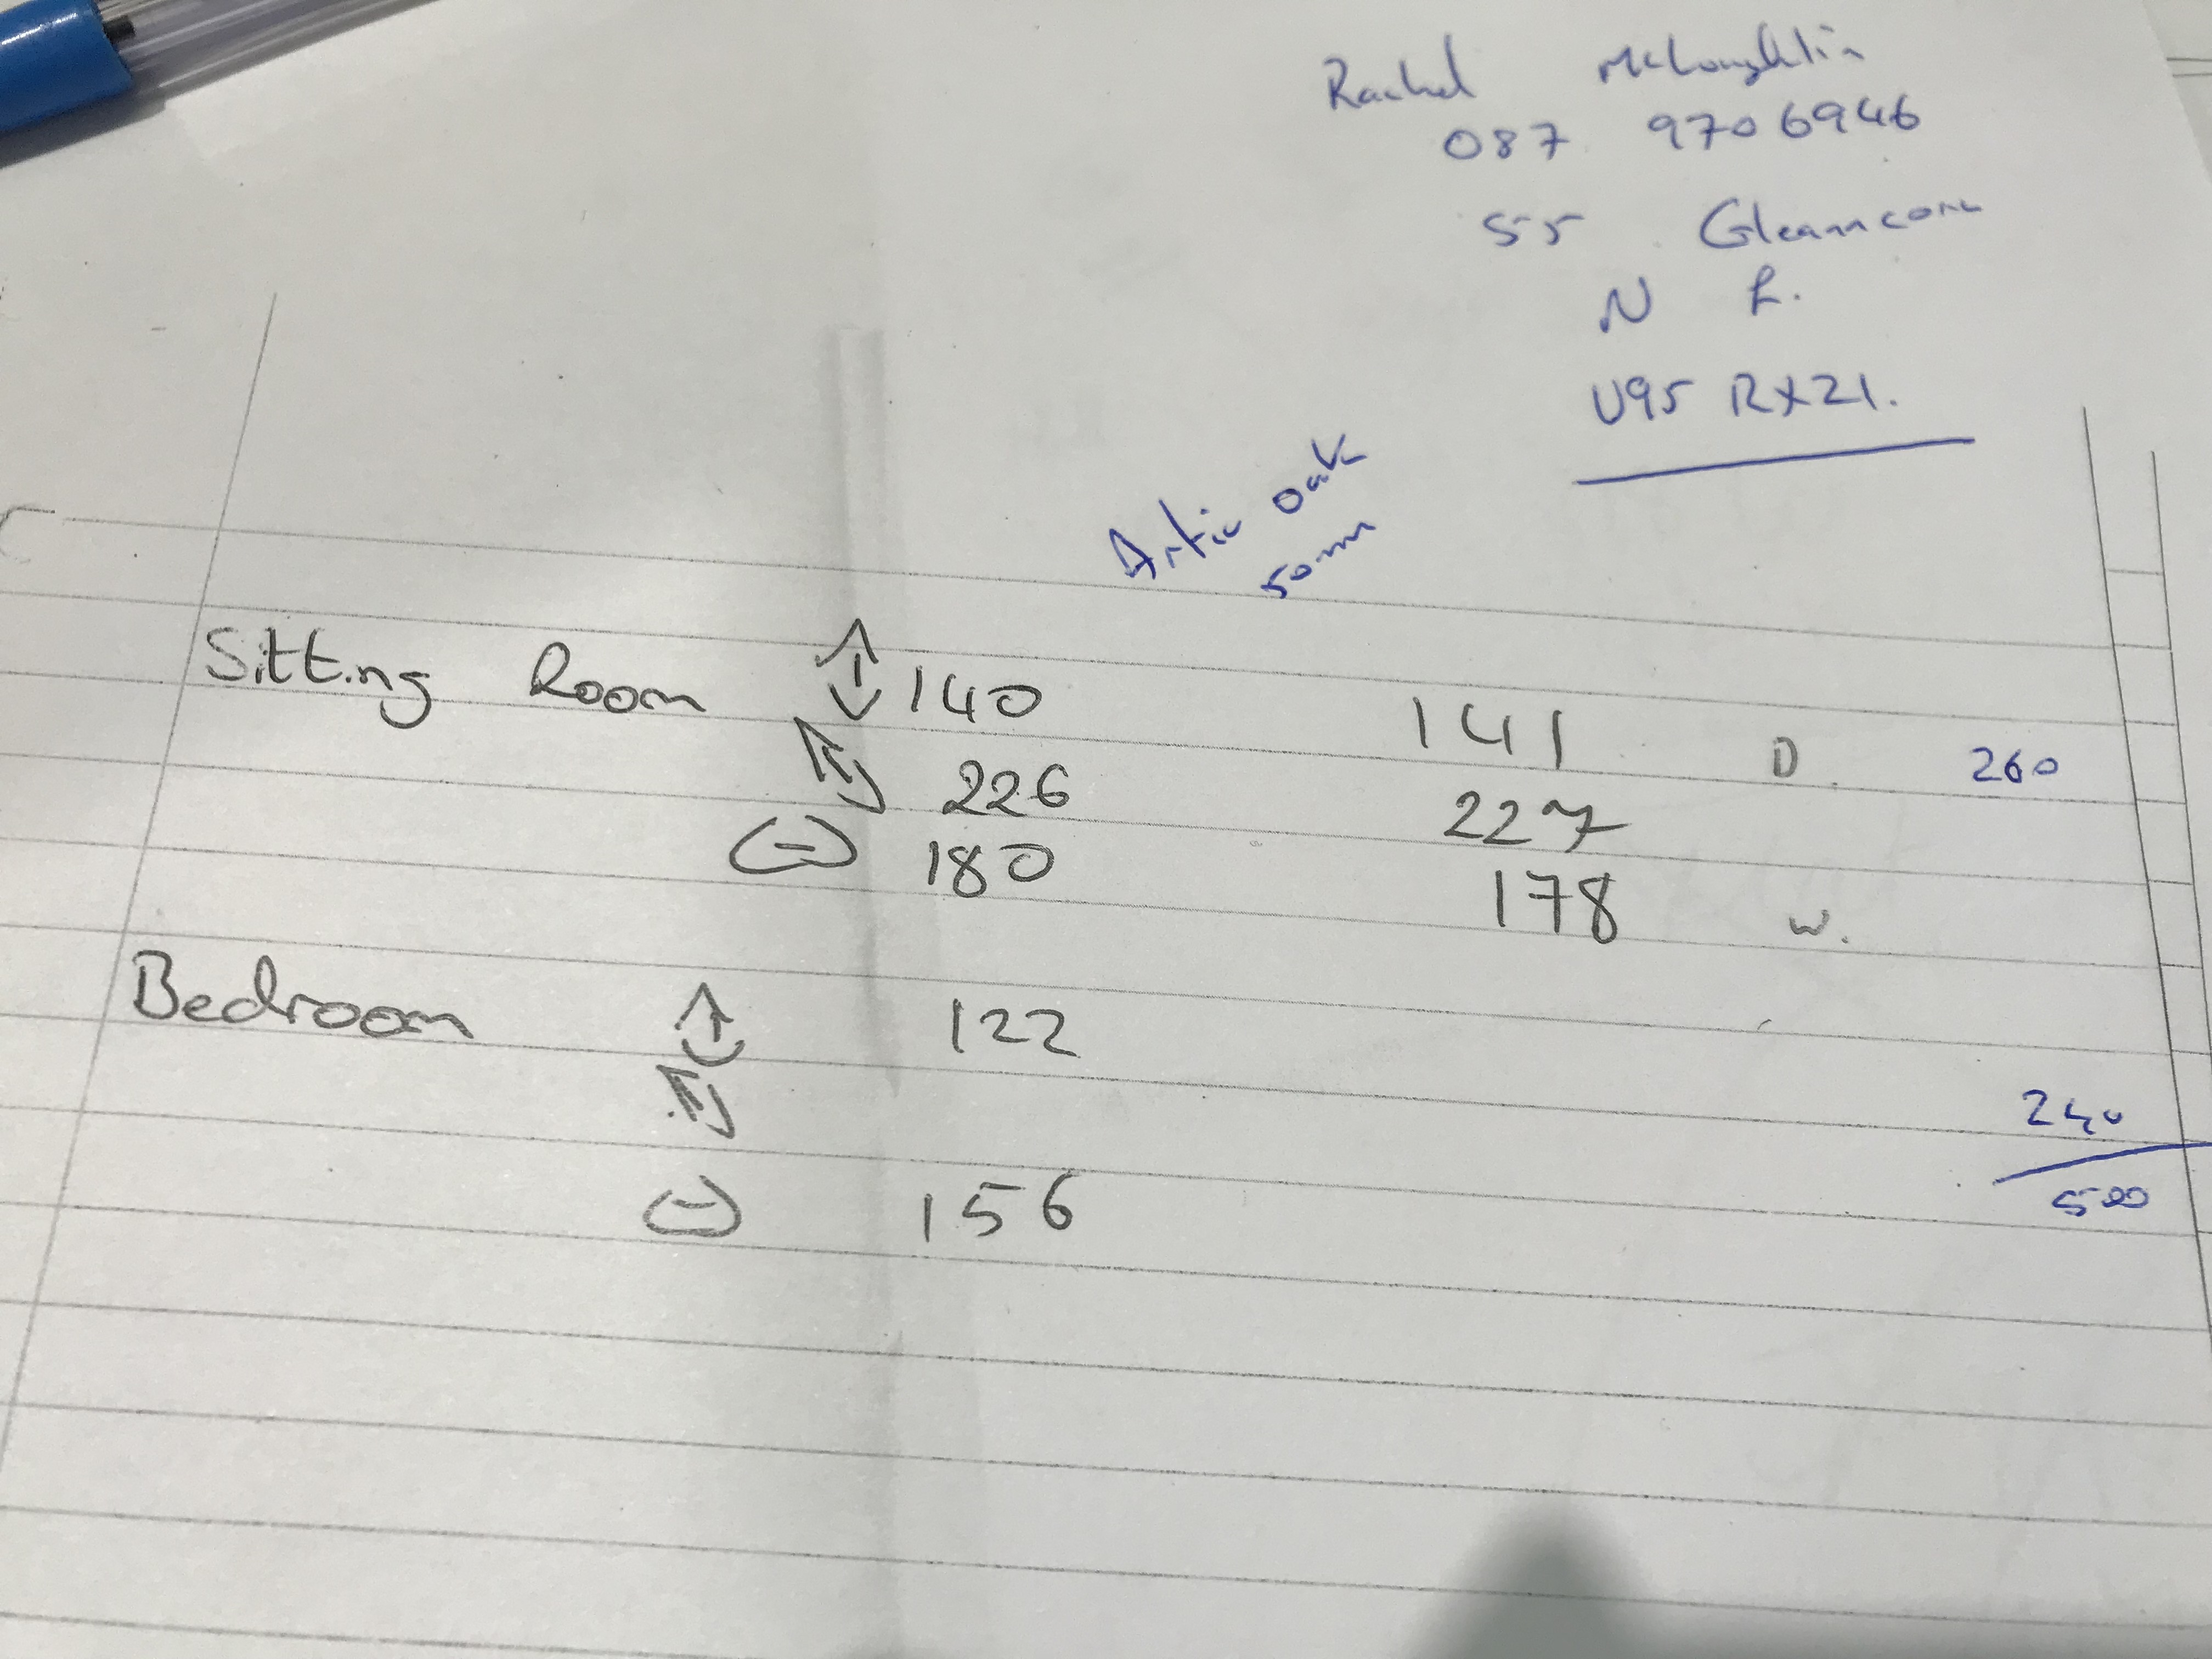 Rachel McLoughlin
087 9706946
55 Gleann
N R.
U95 RX21.
Artic Oak
50mm
Sitting Room 140 141 D. 260
226 227
180 178 W.
Bedroom 122
240
156 500